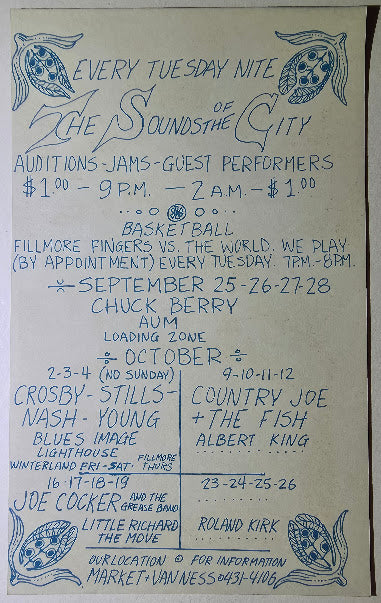 EVERY TUESDAY NITE
THE SOUNDS OF THE CITY
AUDITIONS-JAMS-GUEST PERFORMERS
$1.00 - 9 P.M. - 2 A.M. - $1.00
BASKETBALL
FILLMORE FINGERS VS. THE WORLD. WE PLAY
(BY APPOINTMENT) EVERY TUESDAY. 7P.M.-8P.M.
SEPTEMBER 25-26-27-28
CHUCK BERRY
AUM
LOADING ZONE
OCTOBER
2-3-4 (NO SUNDAY)
CROSBY-STILLS-
NASH-YOUNG
BLUES IMAGE
LIGHTHOUSE
WINTERLAND FRI-SAT. FILLMORE THURS
9-10-11-12
COUNTRY JOE
+ THE FISH
ALBERT KING
16-17-18-19
JOE COCKER AND THE GREASE BAND
LITTLE RICHARD
THE MOVE
23-24-25-26
ROLAND KIRK
OUR LOCATION FOR INFORMATION
MARKET+VAN NESS 431-4106